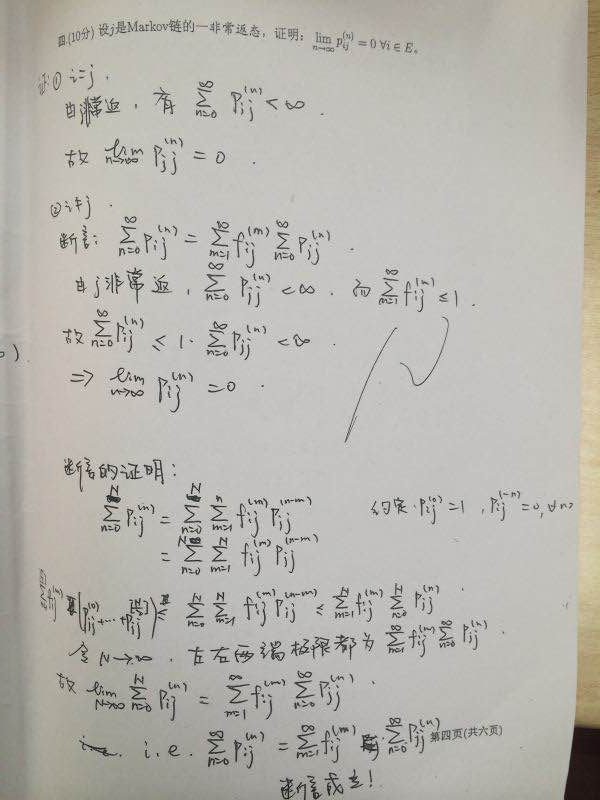 四.(10分) 设j是Markov链的一非常返态，证明：lim_{n→∞} p_{ij}^{(n)} = 0 ∀i ∈ E。
证:① i=j.
由j非常返，有 ∑_{n=0}^{∞} P_{jj}^{(n)} < ∞.
故 lim_{n→∞} P_{jj}^{(n)} = 0.
② i≠j.
断言: ∑_{n=0}^{∞} P_{ij}^{(n)} = ∑_{m=1}^{∞} f_{ij}^{(m)} ∑_{n=0}^{∞} P_{jj}^{(n)}.
由j非常返, ∑_{n=0}^{∞} P_{jj}^{(n)} < ∞. 而 ∑_{n=1}^{∞} f_{ij}^{(n)} ≤ 1.
故 ∑_{n=0}^{∞} P_{ij}^{(n)} ≤ 1· ∑_{n=0}^{∞} P_{jj}^{(n)} < ∞.
=> lim_{n→∞} P_{ij}^{(n)} = 0.
断言的证明:
∑_{n=0}^{N} P_{ij}^{(n)} = ∑_{n=0}^{N} ∑_{m=1}^{n} f_{ij}^{(m)} P_{jj}^{(n-m)} 约定. P_{jj}^{(0)}=1, P_{jj}^{(-n)}=0, ∀n>
= ∑_{n=0}^{N} ∑_{m=1}^{N} f_{ij}^{(m)} P_{jj}^{(n-m)}
f_{ij}^{(m)} (P_{jj}^{(0)}+⋯+P_{jj}) ≤ ∑_{n=0}^{N} ∑_{m=1}^{N} f_{ij}^{(m)} P_{jj}^{(n-m)} ≤ ∑_{m=1}^{N} f_{ij}^{(m)} ∑_{n=0}^{N} P_{jj}^{(n)}
令 N→∞. 左右两端极限都为 ∑_{m=1}^{∞} f_{ij}^{(m)} ∑_{n=0}^{∞} P_{jj}^{(n)}.
故 lim_{N→∞} ∑_{n=0}^{N} P_{ij}^{(n)} = ∑_{m=1}^{∞} f_{ij}^{(m)} ∑_{n=0}^{∞} P_{jj}^{(n)}.
i.e. ∑_{n=0}^{∞} P_{ij}^{(n)} = ∑_{m=1}^{∞} f_{ij}^{(m)} · ∑_{n=0}^{∞} P_{jj}^{(n)}
第四页(共六页)
断言成立!